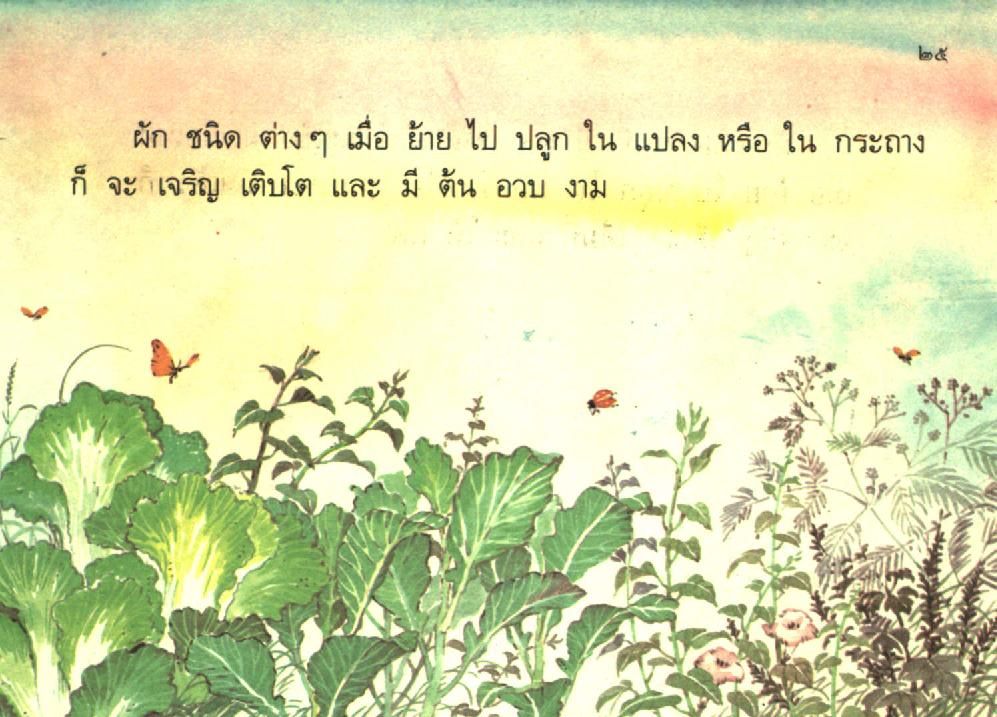 ๒๕
ผัก ชนิด ต่างๆ เมื่อ ย้าย ไป ปลูก ใน แปลง หรือ ใน กระถาง
ก็ จะ เจริญ เติบโต และ มี ต้น อวบ งาม